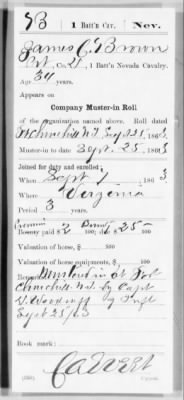 B | 1 Batt'n Cav. | Nev.
James C. Brown
Pvt, Co. D, 1 Batt'n Nevada Cavalry.
Age 34 years.
Appears on
Company Muster-in Roll
of the organization named above. Roll dated
Ft Churchill N.T. Sept 25, 1863.
Muster-in to date Sept. 25, 1863
Joined for duty and enrolled:
When Sept 1, 1863
Where Virginia
Period 3 years.
Premium paid $2 /100; Bounty due $25 /100
Valuation of horse, $ /100
Valuation of horse equipments, $ /100
Remarks: Mustered in at Fort
Churchill N.T. by Capt
Sept 25/63
Book mark:
Calvert
(356) Copyist.